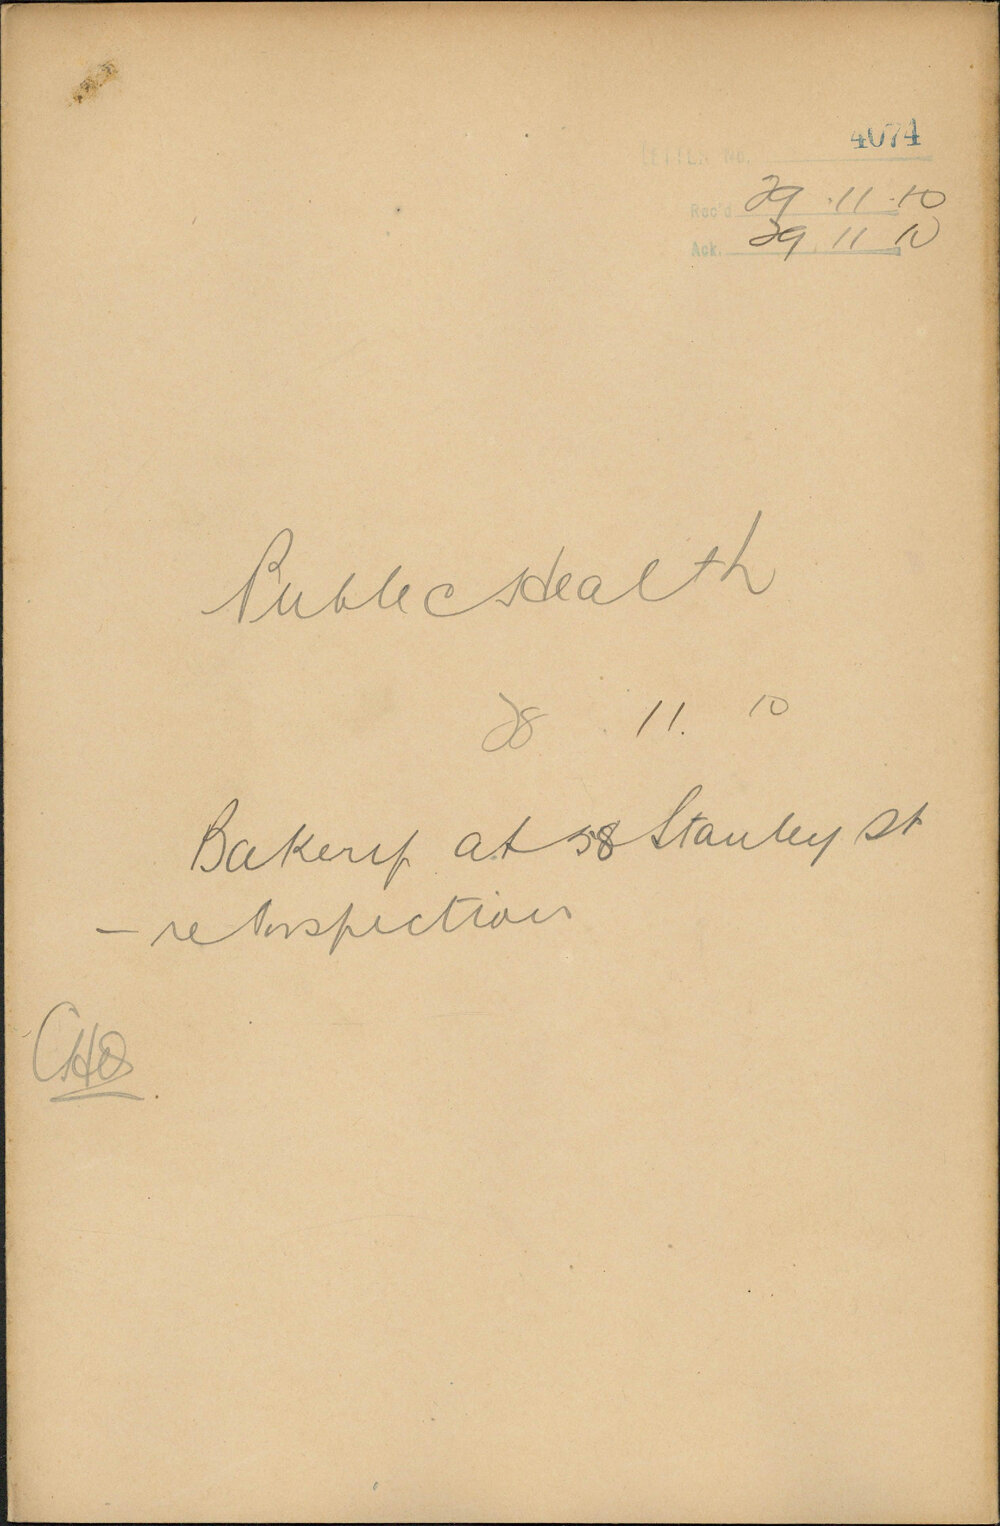 LETTER No. 4074
Rec'd 29.11.10
Ack. 29.11.10
Public Health
28.11.10
Bakery at 58 Stanley St
- re Inspection
CHO